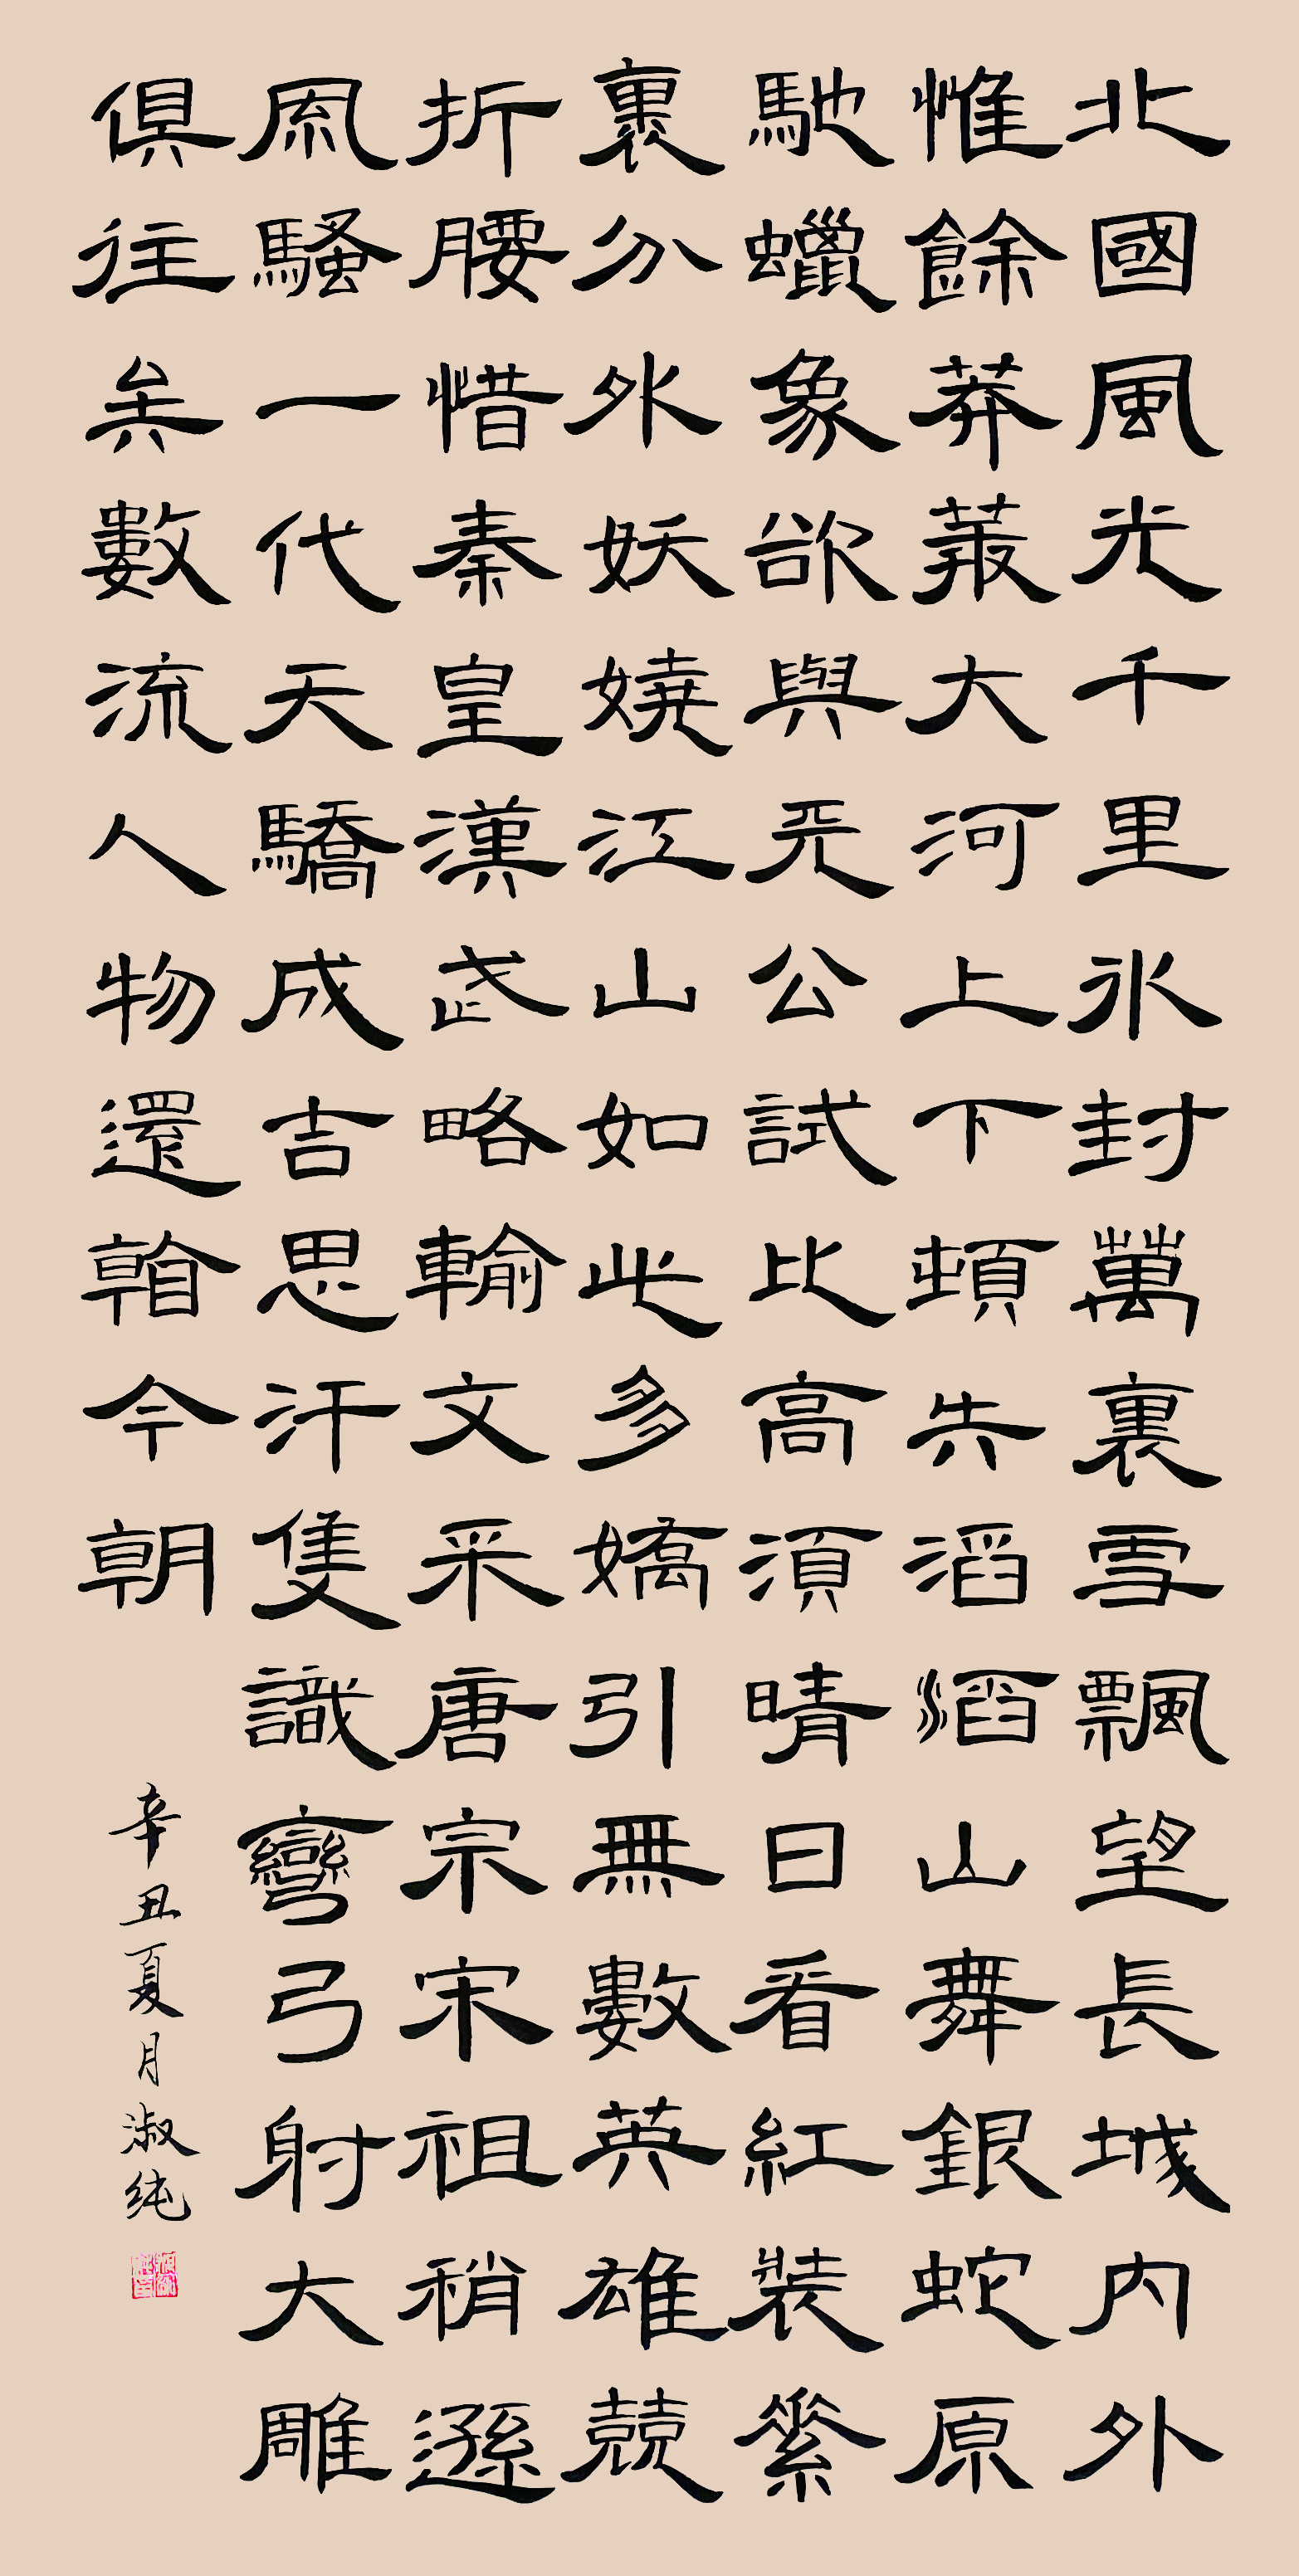 北國風光千里冰封萬裏雪飄望長城内外
惟餘莽叢大河上下頓失滔滔山舞銀蛇原
馳蠟象欲與天公試比高須晴日看紅裝素
裏分外妖嬈江山如此多嬌引無數英雄競
折腰惜秦皇漢武略輸文采唐宗宋祖稍遜
風騷一代天驕成吉思汗隻識彎弓射大雕
俱往矣數流人物還看今朝
辛丑夏月淑纯